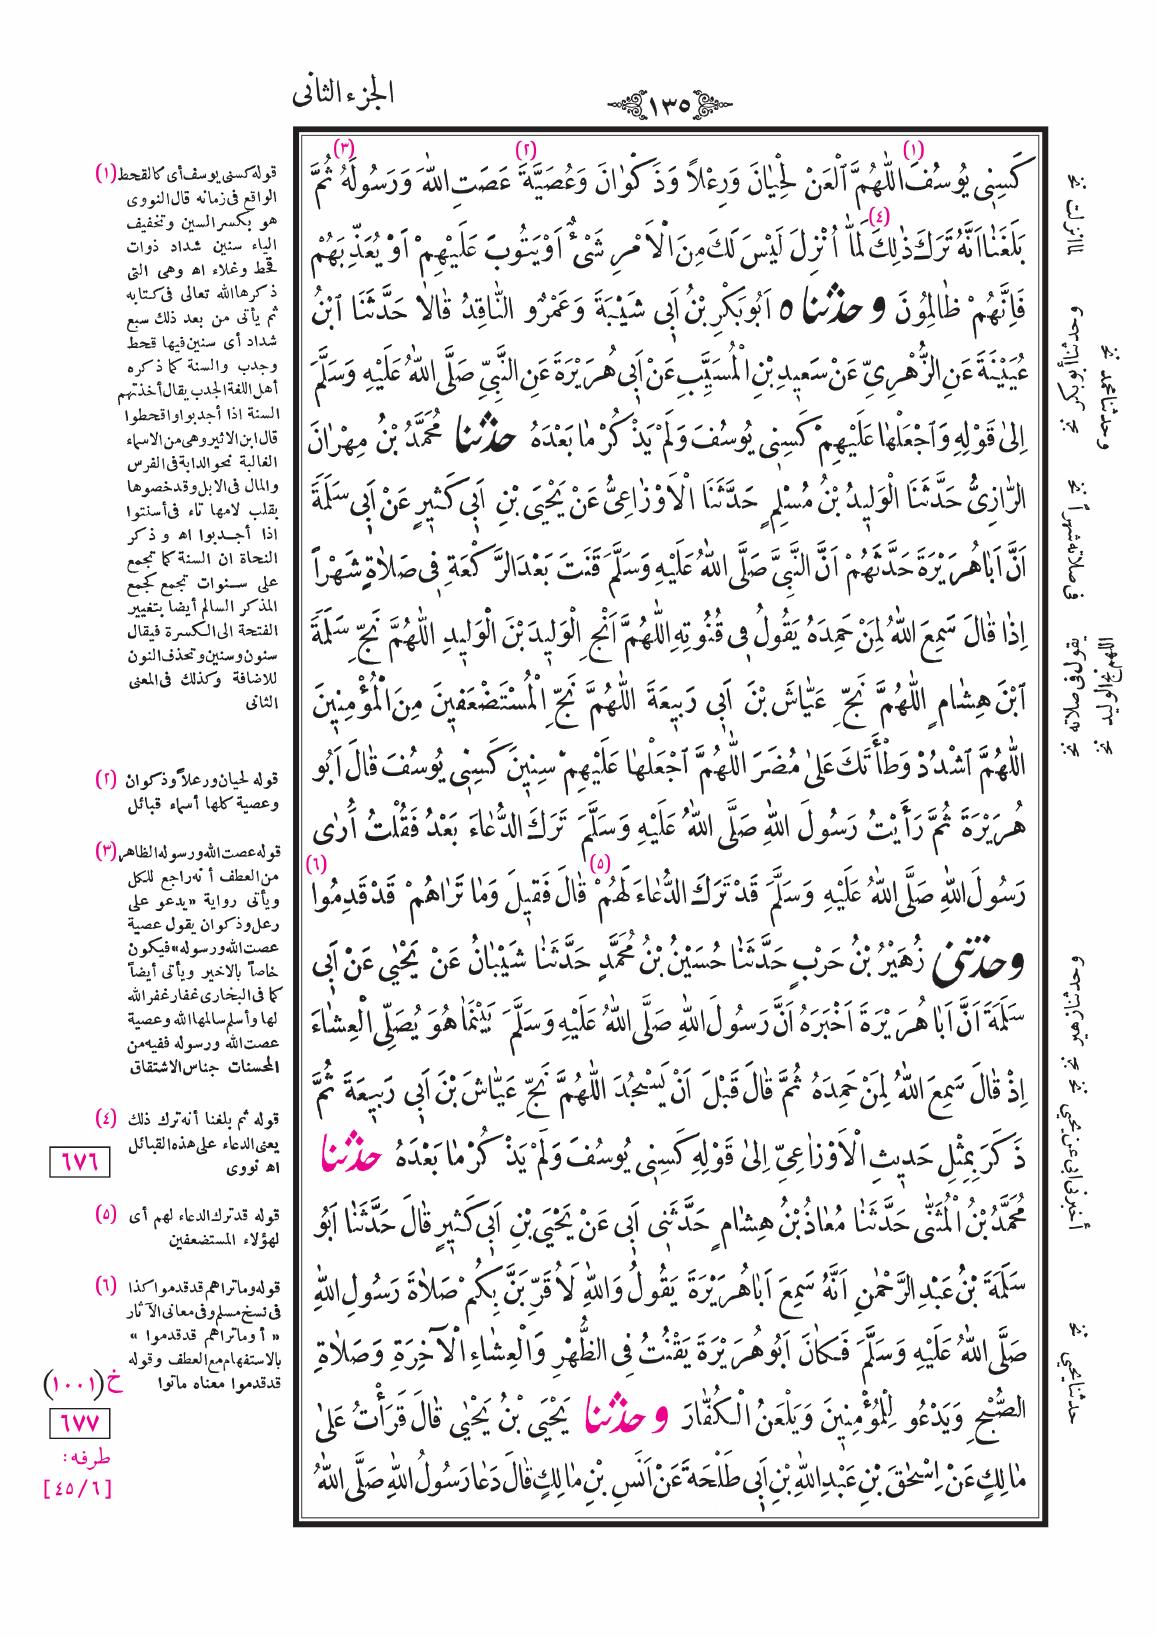 الجزء الثانى
١٣٥
(١) (٢) (٣)
كَسِنِى يُوسُفَ اَللّٰهُمَّ الْعَنْ لِحْيَانَ وَرِعْلاً وَذَكْوَانَ وَعُصَيَّةَ عَصَتِ اللّٰهَ وَرَسُولَهُ ثُمَّ
(٤)
بَلَغَنَا اَنَّهُ تَرَكَ ذٰلِكَ لَمَّا اُنْزِلَ لَيْسَ لَكَ مِنَ الْاَمْرِ شَىْءٌ اَوْيَتُوبَ عَلَيْهِمْ اَوْ يُعَذِّبَهُمْ
فَاِنَّهُمْ ظَالِمُونَ وحدثنا ٥ اَبُوبَكْرِ بْنُ اَبِى شَيْبَةَ وَعَمْرٌو النَّاقِدُ قَالَا حَدَّثَنَا ابْنُ
عُيَيْنَةَ عَنِ الزُّهْرِىِّ عَنْ سَعِيدِ بْنِ الْمُسَيَّبِ عَنْ اَبِى هُرَيْرَةَ عَنِ النَّبِىِّ صَلَّى اللّٰهُ عَلَيْهِ وَسَلَّمَ
اِلىٰ قَوْلِهِ وَاجْعَلْهَا عَلَيْهِمْ كَسِنِى يُوسُفَ وَلَمْ يَذْكُرْ مَا بَعْدَهُ حدثنا مُحَمَّدُ بْنُ مِهْرَانَ
الرَّازِىُّ حَدَّثَنَا الْوَلِيدُ بْنُ مُسْلِمٍ حَدَّثَنَا الْاَوْزَاعِىُّ عَنْ يَحْيَى بْنِ اَبِى كَثِيرٍ عَنْ اَبِى سَلَمَةَ
اَنَّ اَبَا هُرَيْرَةَ حَدَّثَهُمْ اَنَّ النَّبِىَّ صَلَّى اللّٰهُ عَلَيْهِ وَسَلَّمَ قَنَتَ بَعْدَ الرَّكْعَةِ فِى صَلَاةٍ شَهْراً
اِذَا قَالَ سَمِعَ اللّٰهُ لِمَنْ حَمِدَهُ يَقُولُ فِى قُنُوتِهِ اَللّٰهُمَّ اَنْجِ الْوَلِيدَ بْنَ الْوَلِيدِ اَللّٰهُمَّ نَجِّ سَلَمَةَ
ابْنَ هِشَامٍ اَللّٰهُمَّ نَجِّ عَيَّاشَ بْنَ اَبِى رَبِيعَةَ اَللّٰهُمَّ نَجِّ الْمُسْتَضْعَفِينَ مِنَ الْمُؤْمِنِينَ
اَللّٰهُمَّ اشْدُدْ وَطْأَتَكَ عَلىٰ مُضَرَ اَللّٰهُمَّ اجْعَلْهَا عَلَيْهِمْ سِنِينَ كَسِنِى يُوسُفَ قَالَ اَبُو
هُرَيْرَةَ ثُمَّ رَأَيْتُ رَسُولَ اللّٰهِ صَلَّى اللّٰهُ عَلَيْهِ وَسَلَّمَ تَرَكَ الدُّعَاءَ بَعْدُ فَقُلْتُ اُرىٰ
(٥) (٦)
رَسُولَ اللّٰهِ صَلَّى اللّٰهُ عَلَيْهِ وَسَلَّمَ قَدْ تَرَكَ الدُّعَاءَ لَهُمْ قَالَ فَقِيلَ وَمَا تَرَاهُمْ قَدْ قَدِمُوا
وحدثنى زُهَيْرُ بْنُ حَرْبٍ حَدَّثَنَا حُسَيْنُ بْنُ مُحَمَّدٍ حَدَّثَنَا شَيْبَانُ عَنْ يَحْيٰى عَنْ اَبِى
سَلَمَةَ اَنَّ اَبَا هُرَيْرَةَ اَخْبَرَهُ اَنَّ رَسُولَ اللّٰهِ صَلَّى اللّٰهُ عَلَيْهِ وَسَلَّمَ بَيْنَمَا هُوَ يُصَلِّى الْعِشَاءَ
اِذْ قَالَ سَمِعَ اللّٰهُ لِمَنْ حَمِدَهُ ثُمَّ قَالَ قَبْلَ اَنْ يَسْجُدَ اَللّٰهُمَّ نَجِّ عَيَّاشَ بْنَ اَبِى رَبِيعَةَ ثُمَّ
ذَكَرَ بِمِثْلِ حَدِيثِ الْاَوْزَاعِىِّ اِلىٰ قَوْلِهِ كَسِنِى يُوسُفَ وَلَمْ يَذْكُرْ مَا بَعْدَهُ حدثنا
مُحَمَّدُ بْنُ الْمُثَنّٰى حَدَّثَنَا مُعَاذُ بْنُ هِشَامٍ حَدَّثَنِى اَبِى عَنْ يَحْيَى بْنِ اَبِى كَثِيرٍ قَالَ حَدَّثَنَا اَبُو
سَلَمَةَ بْنُ عَبْدِ الرَّحْمٰنِ اَنَّهُ سَمِعَ اَبَا هُرَيْرَةَ يَقُولُ وَاللّٰهِ لَاُقَرِّبَنَّ بِكُمْ صَلَاةَ رَسُولِ اللّٰهِ
صَلَّى اللّٰهُ عَلَيْهِ وَسَلَّمَ فَكَانَ اَبُو هُرَيْرَةَ يَقْنُتُ فِى الظُّهْرِ وَالْعِشَاءِ الْآخِرَةِ وَصَلَاةِ
الصُّبْحِ وَيَدْعُو لِلْمُؤْمِنِينَ وَيَلْعَنُ الْكُفَّارَ وحدثنا يَحْيَى بْنُ يَحْيٰى قَالَ قَرَأْتُ عَلىٰ
مَالِكٍ عَنْ اِسْحٰقَ بْنِ عَبْدِ اللّٰهِ بْنِ اَبِى طَلْحَةَ عَنْ اَنَسِ بْنِ مَالِكٍ قَالَ دَعَا رَسُولُ اللّٰهِ صَلَّى اللّٰهُ
لما انزلت نخ
وحدثنا أبو بكر نخ
وحدثنا محمد نخ
فى صلاته شهراً نخ
يقول فى صلاته نخ
اللهم نج الوليد نخ
وحدثنا زهير نخ
أخبرنى ابى عن يحيى نخ
حدثنا يحيى نخ
(١) قوله كسنى يوسف أى كالقحط
الواقع فى زمانه قال النووى
هو بكسر السين وتخفيف
الياء سنين شداد ذوات
قحط وغلاء اه وهى التى
ذكرها الله تعالى فى كتابه
ثم يأتى من بعد ذلك سبع
شداد أى سنين فيها قحط
وجدب والسنة كما ذكره
أهل اللغة الجدب يقال أخذتهم
السنة اذا أجدبوا واقحطوا
قال ابن الاثير وهى من الاسماء
الغالبة نحو الدابة فى الفرس
والمال فى الابل وقد خصوها
بقلب لامها تاء فى أسنتوا
اذا أجدبوا اه وذكر
النحاة ان السنة كما تجمع
على سنوات تجمع كجمع
المذكر السالم أيضا بتغيير
الفتحة الى الكسرة فيقال
سنون وسنين وتحذف النون
للاضافة وكذلك فى المعنى
الثانى
(٢) قوله لحيان ورعلاً وذكوان
وعصية كلها أسماء قبائل
(٣) قوله عصت الله ورسوله الظاهر
من العطف أنه راجع للكل
ويأتى رواية «يدعو على
رعل وذكوان يقول عصية
عصت الله ورسوله» فيكون
خاصاً بالاخير ويأتى أيضاً
كما فى البخارى غفار غفر الله
لها وأسلم سالمها الله وعصية
عصت الله ورسوله ففيه من
المحسنات جناس الاشتقاق
(٤) قوله ثم بلغنا أنه ترك ذلك
يعنى الدعاء على هذه القبائل
اه نووى
٦٧٦
(٥) قوله قد ترك الدعاء لهم أى
لهؤلاء المستضعفين
(٦) قوله وما تراهم قد قدموا كذا
فى نسخ مسلم وفى معانى الآثار
«أو ما تراهم قد قدموا»
بالاستفهام مع العطف وقوله
قد قدموا معناه ماتوا
خ (١٠٠١)
٦٧٧
طرفه:
[٤٥/٦]